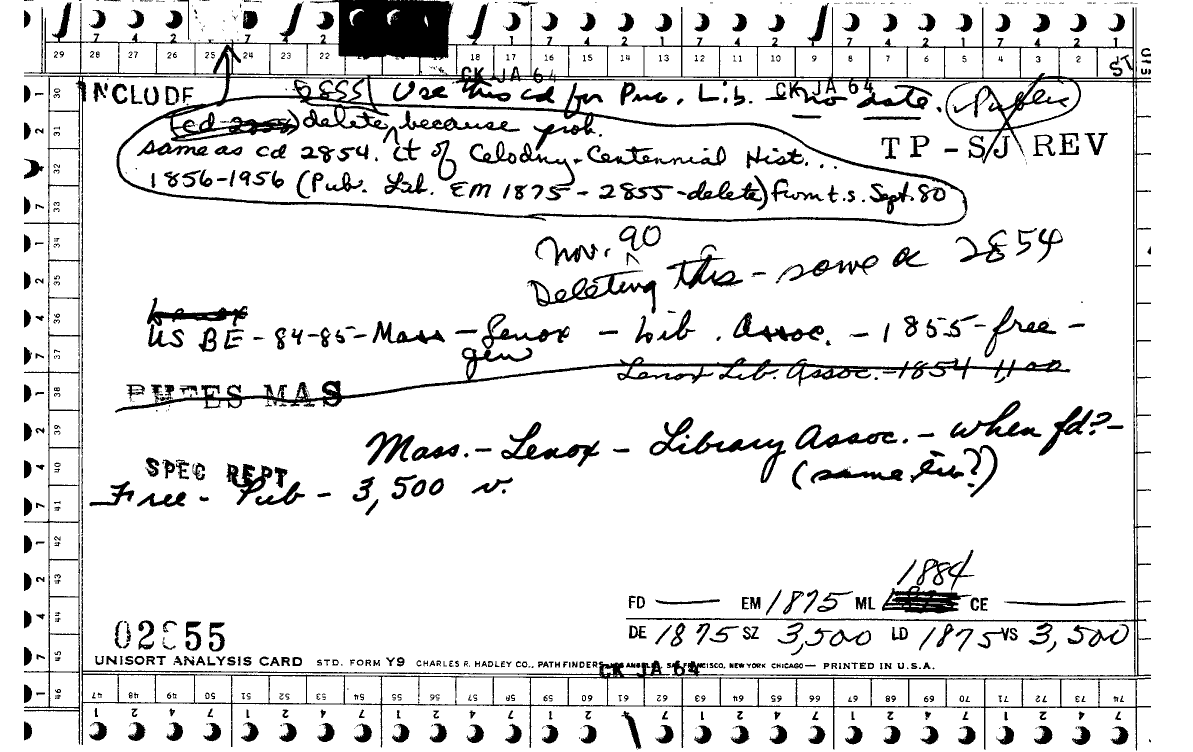 7 4 2 7 4 2 7 4 2 1 7 4 2 1 7 4 2 1
29 28 27 26 25 24 23 22 18 17 16 15 14 13 12 11 10 9 8 7 6 5 4 3 2 1
CK JA 64
CK JA 64
INCLUDE 2855 Use this cd for Puc. Lib. - no date. Public
(cd 2854) delete, because prob.
TP-SJ REV
same as cd 2854. ct of Celodny-Centennial Hist...
1856-1956 (Pub. Lib. EM 1875 - 2855-delete) from t.s. Sept. 80
Nov. 90
Deleting this - same as 2854
Lenox
US BE - 84-85 - Mass - Lenox - Lib. Assoc. - 1855 - free -
gen
Lenox Lib. Assoc. - 1854 1,100
MAS
Mass. - Lenox - Library Assoc. - when fd? -
(same lib?)
SPEC REPT
Free - Pub - 3,500 v.
1884
FD — EM 1875 ML 1875 CE —
DE 1875 SZ 3,500 LD 1875 VS 3,500
02855
UNISORT ANALYSIS CARD STD. FORM Y9 CHARLES R. HADLEY CO., PATHFINDERS, LOS ANGELES, SAN FRANCISCO, NEW YORK CHICAGO — PRINTED IN U.S.A.
CK JA 64
47 48 49 50 51 52 53 54 55 56 57 58 59 60 61 62 63 64 65 66 67 68 69 70 71 72 73 74
1 2 4 7 1 2 4 7 1 2 4 7 1 2 4 7 1 2 4 7 1 2 4 7 1 2 4 7